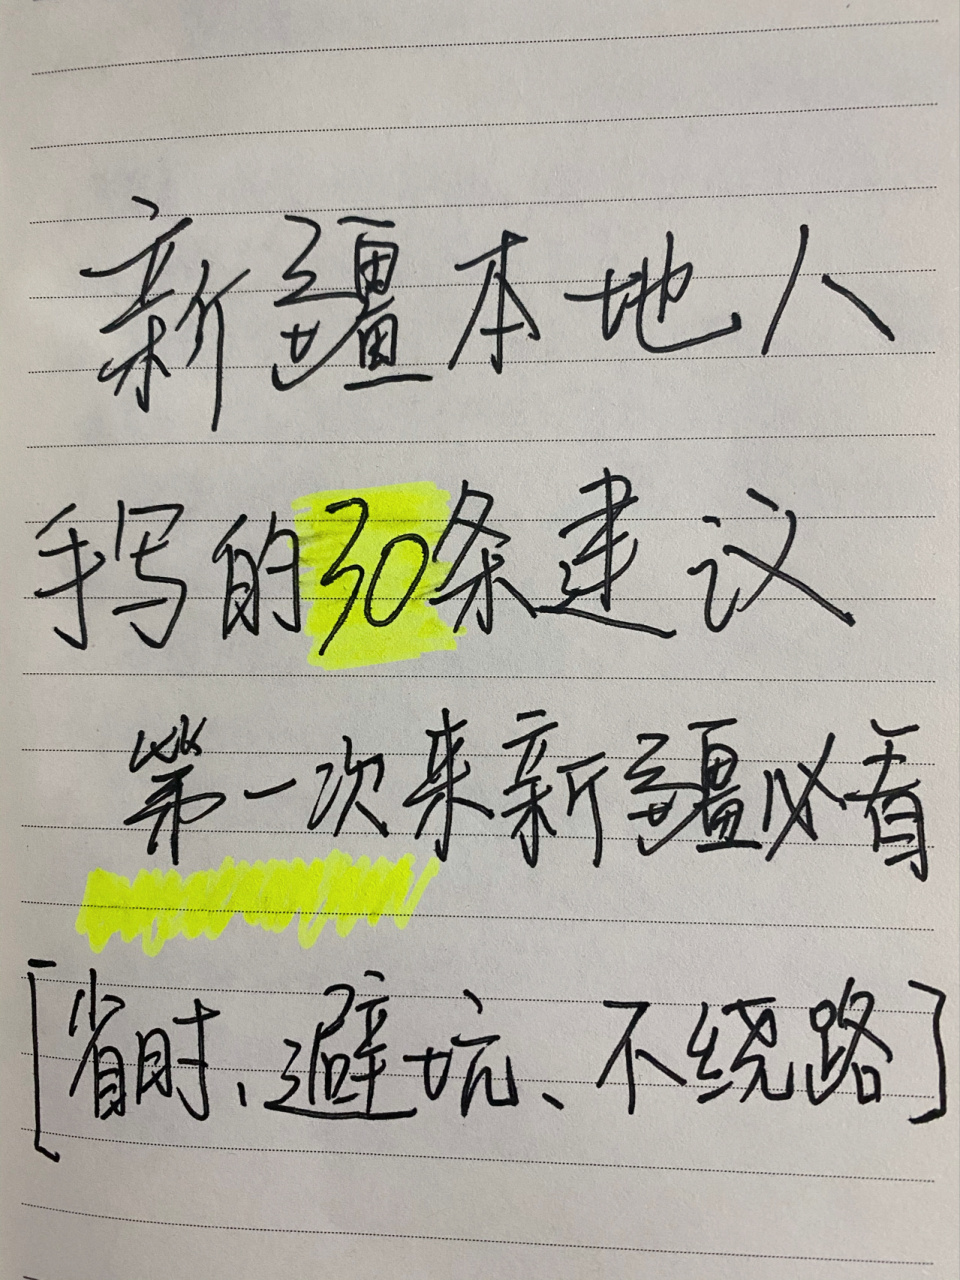 新疆本地人
手写的30条建议
第一次来新疆必看
[省时、避坑、不绕路]